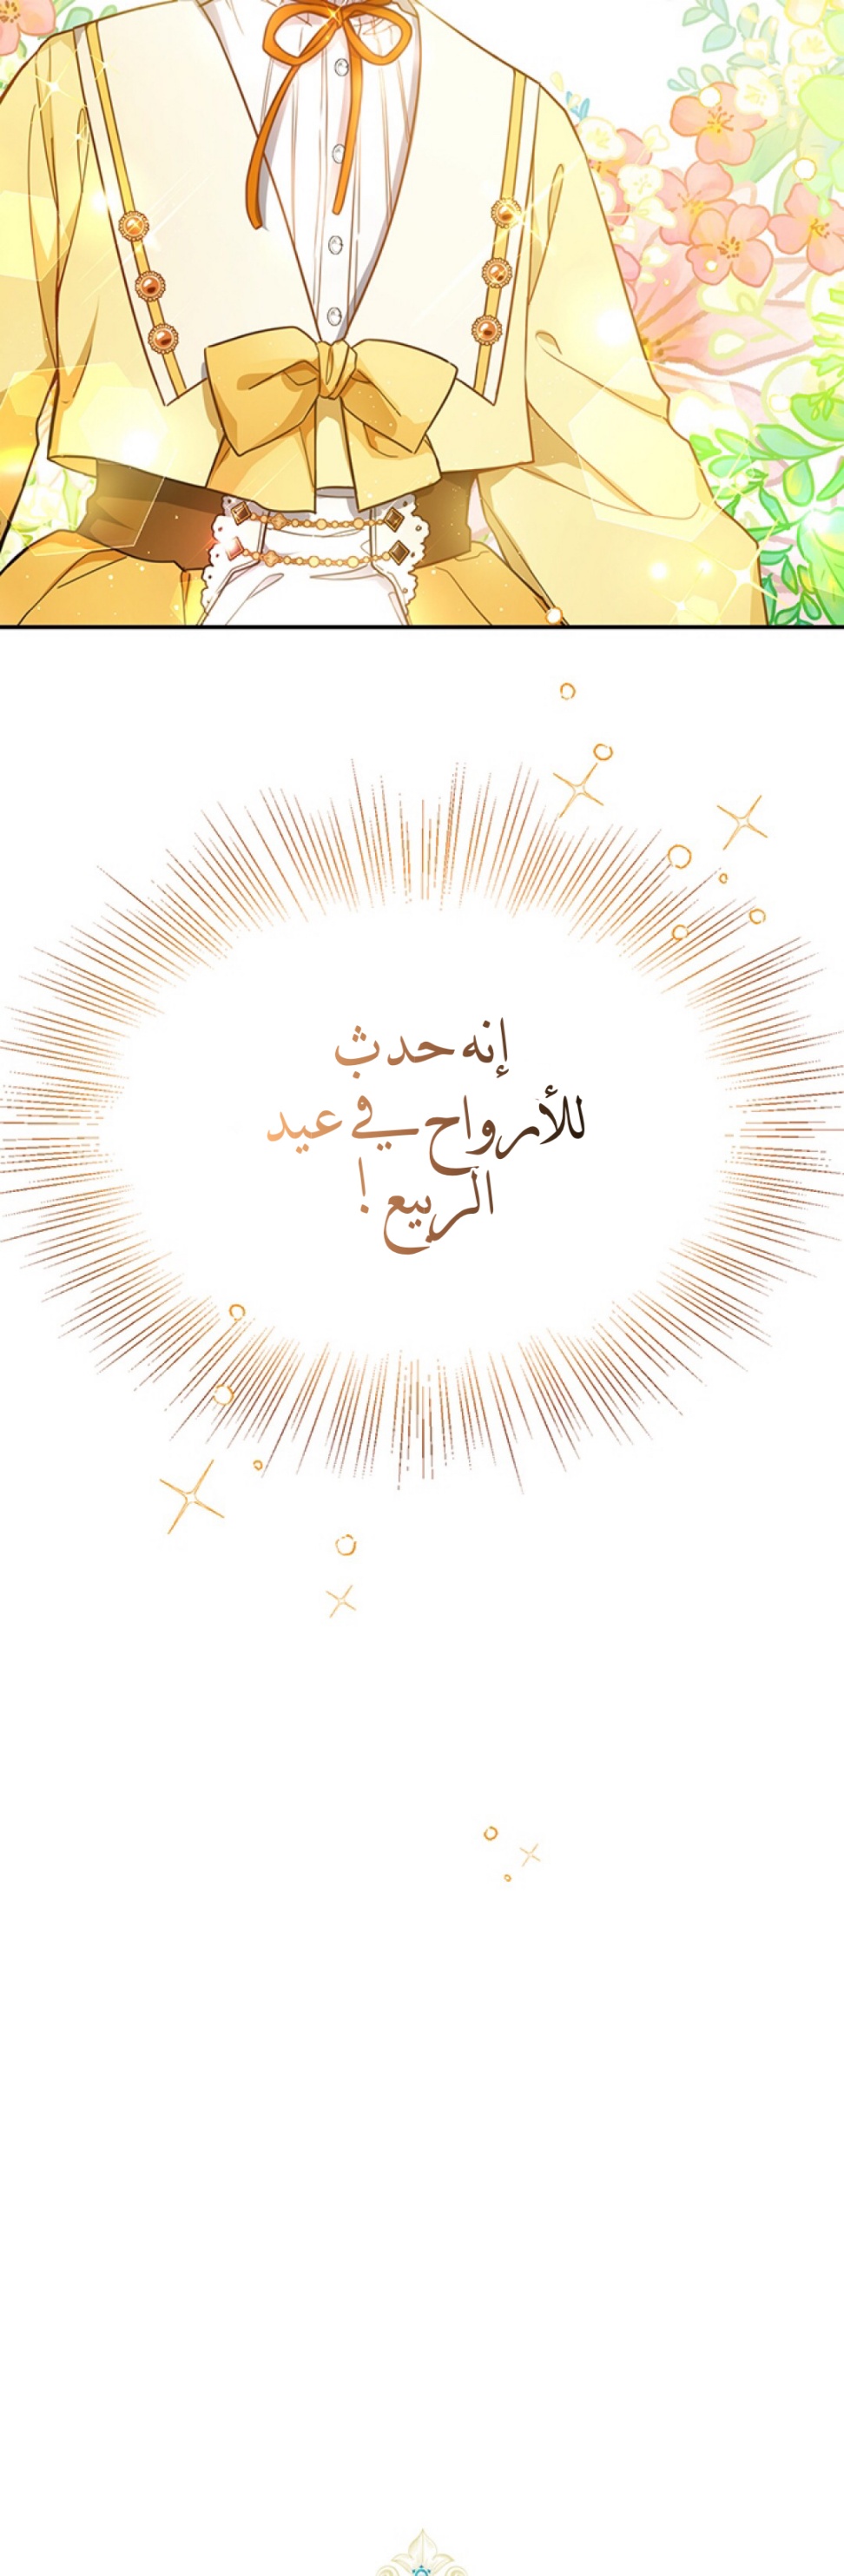 إنه حدث
للأرواح في عيد
الربيع !